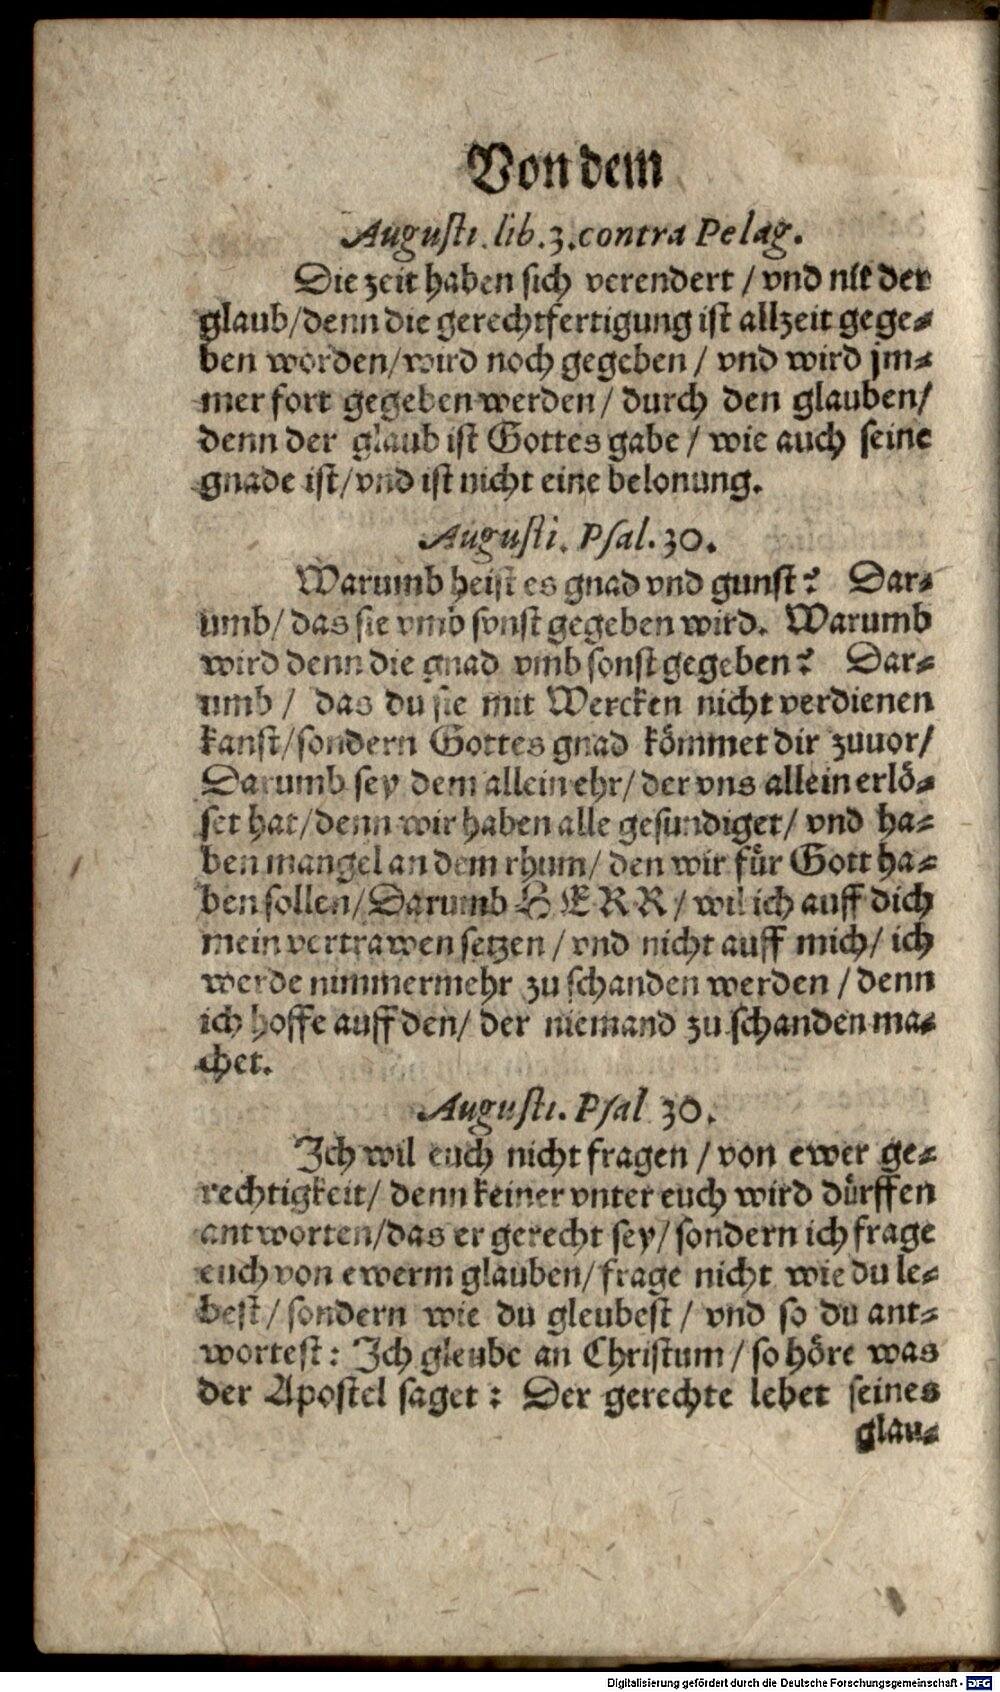 Von dem
Augusti. lib. 3. contra Pelag.
Die zeit haben sich verendert / vnd nit der
glaub/denn die gerechtfertigung ist allzeit gege⸗
ben worden/wird noch gegeben / vnd wird jm⸗
mer fort gegeben werden / durch den glauben/
denn der glaub ist Gottes gabe / wie auch seine
gnade ist/vnd ist nicht eine belonung.
Augusti. Psal. 30.
Warumb heist es gnad vnd gunst? Dar⸗
umb/ das sie vmb sonst gegeben wird. Warumb
wird denn die gnad vmb sonst gegeben? Dar⸗
umb / das du sie mit Wercken nicht verdienen
kanst/sondern Gottes gnad kömmet dir zuuor/
Darumb sey dem allein ehr/ der vns allein erlö⸗
set hat/denn wir haben alle gesundiget/ vnd ha⸗
ben mangel an dem rhum/ den wir für Gott ha⸗
ben sollen/Darumb HERR/ wil ich auff dich
mein vertrawen setzen / vnd nicht auff mich/ ich
werde nimmermehr zu schanden werden / denn
ich hoffe auff den/ der niemand zu schanden ma⸗
chet.
Augusti. Psal 30.
Ich wil euch nicht fragen / von ewer ge⸗
rechtigkeit/ denn keiner vnter euch wird dürffen
antworten/das er gerecht sey/ sondern ich frage
euch von ewerm glauben/ frage nicht wie du le⸗
best/ sondern wie du gleubest / vnd so du ant⸗
wortest: Ich gleube an Christum / so höre was
der Apostel saget: Der gerechte lebet seines
glau⸗
Digitalisierung gefördert durch die Deutsche Forschungsgemeinschaft - DFG